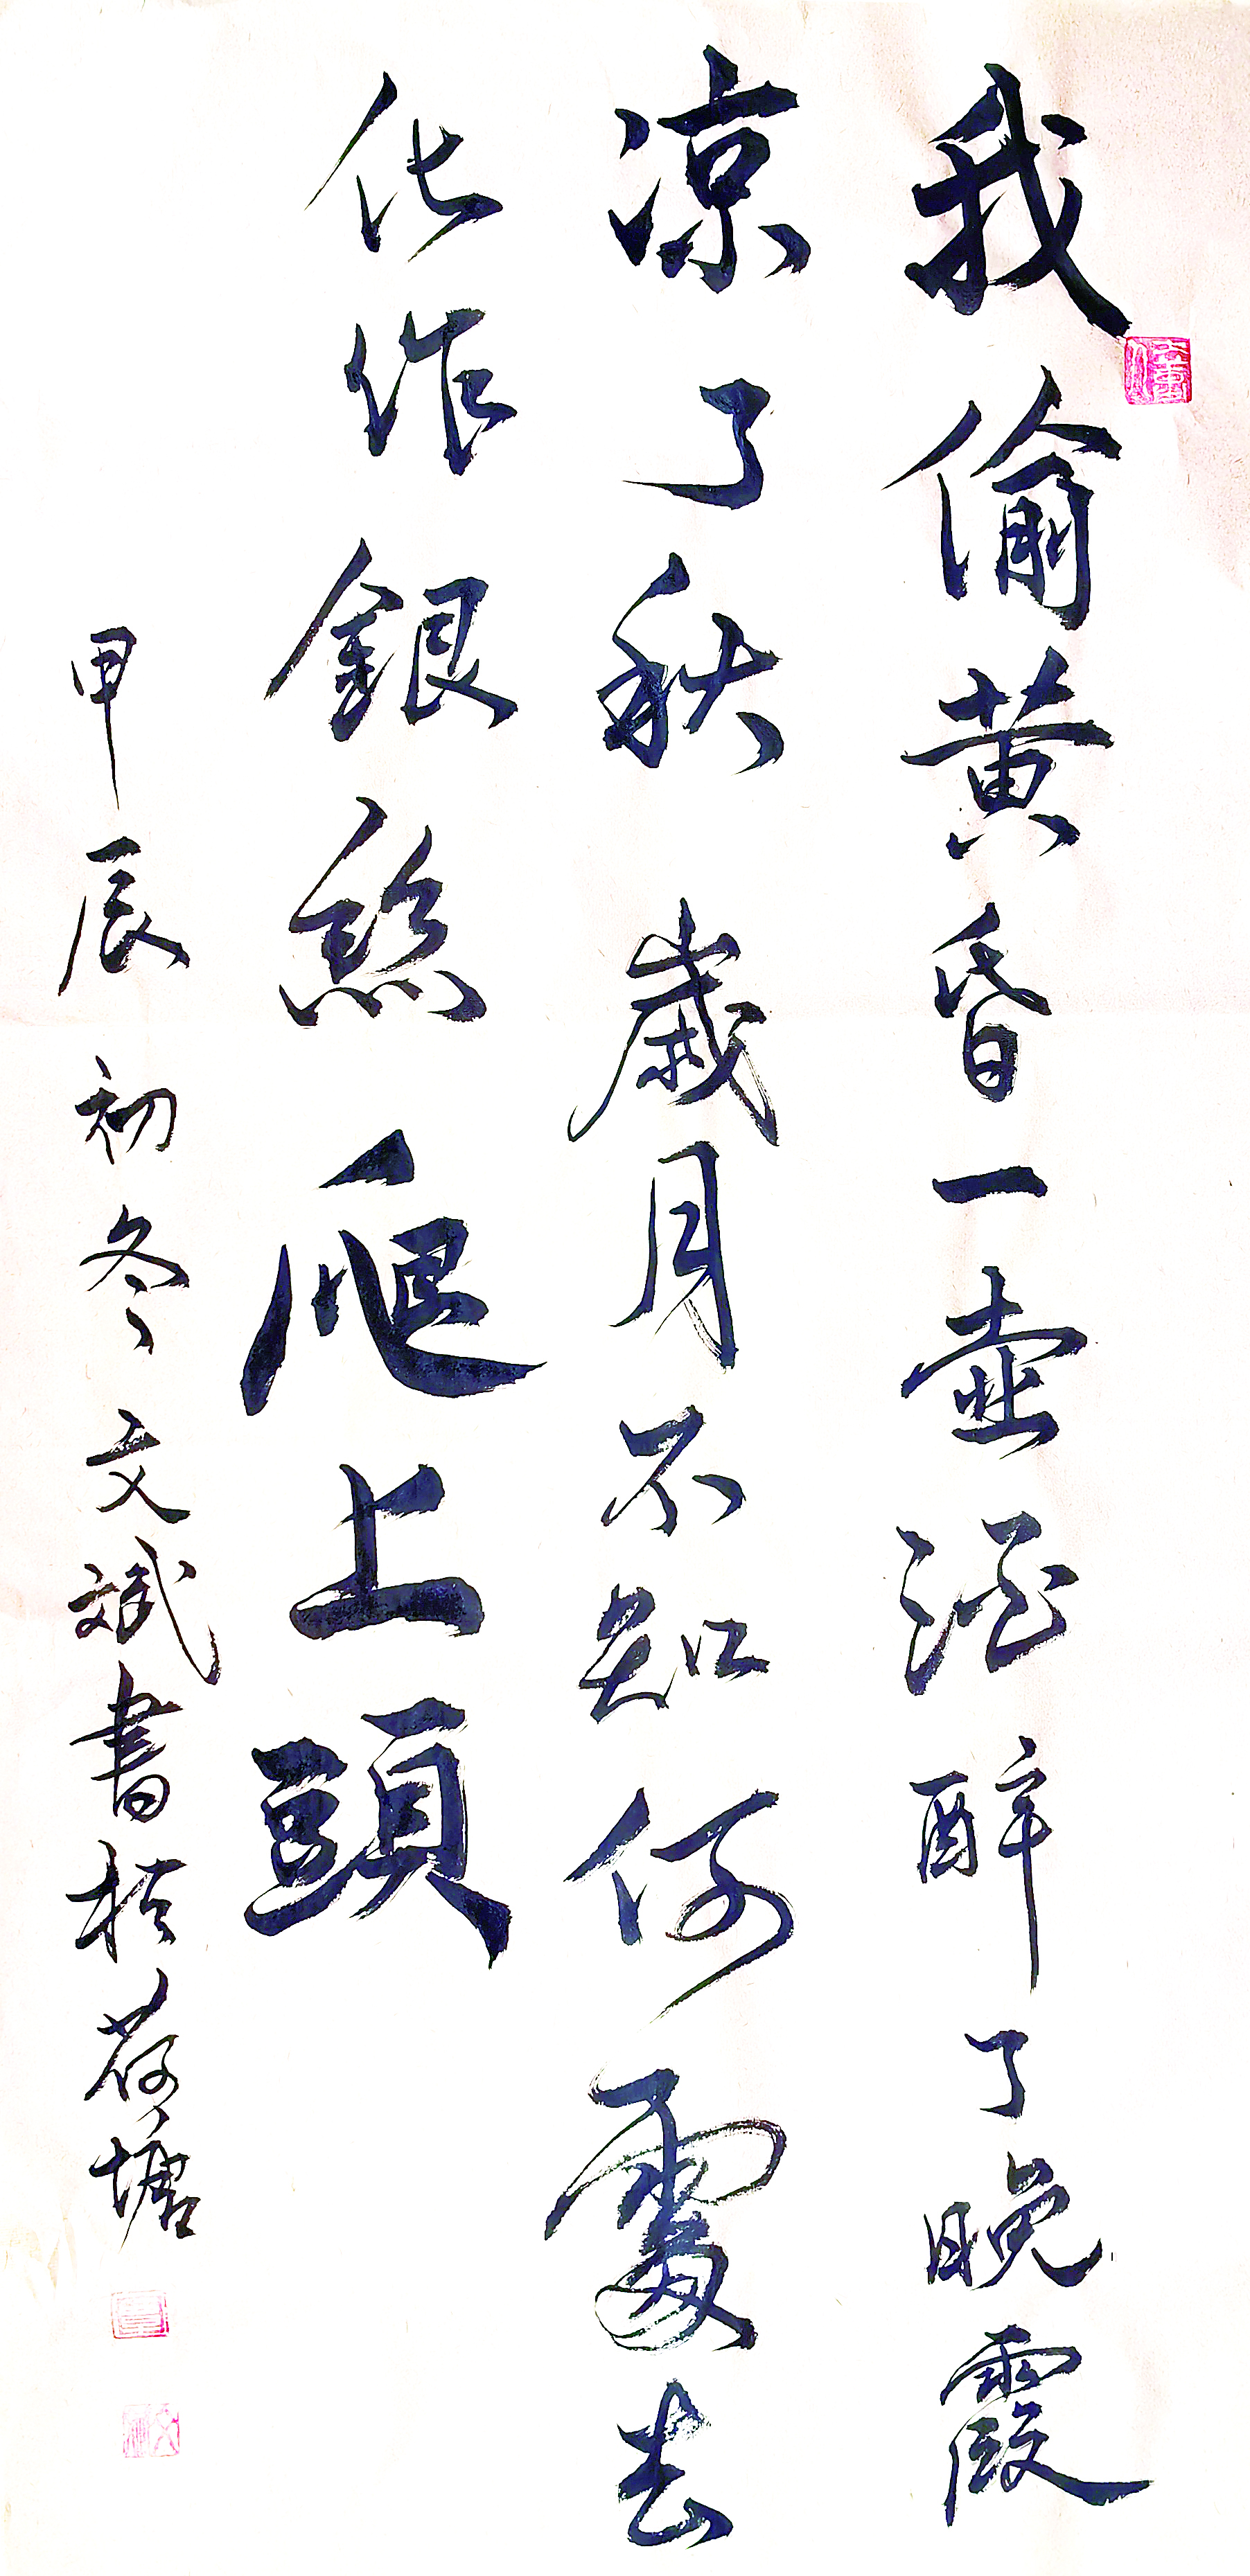 我偷黄昏一壶酒醉了晚霞
凉了秋歲月不知何處去
化作銀絲爬上頭
甲辰初冬文斌書於荷塘